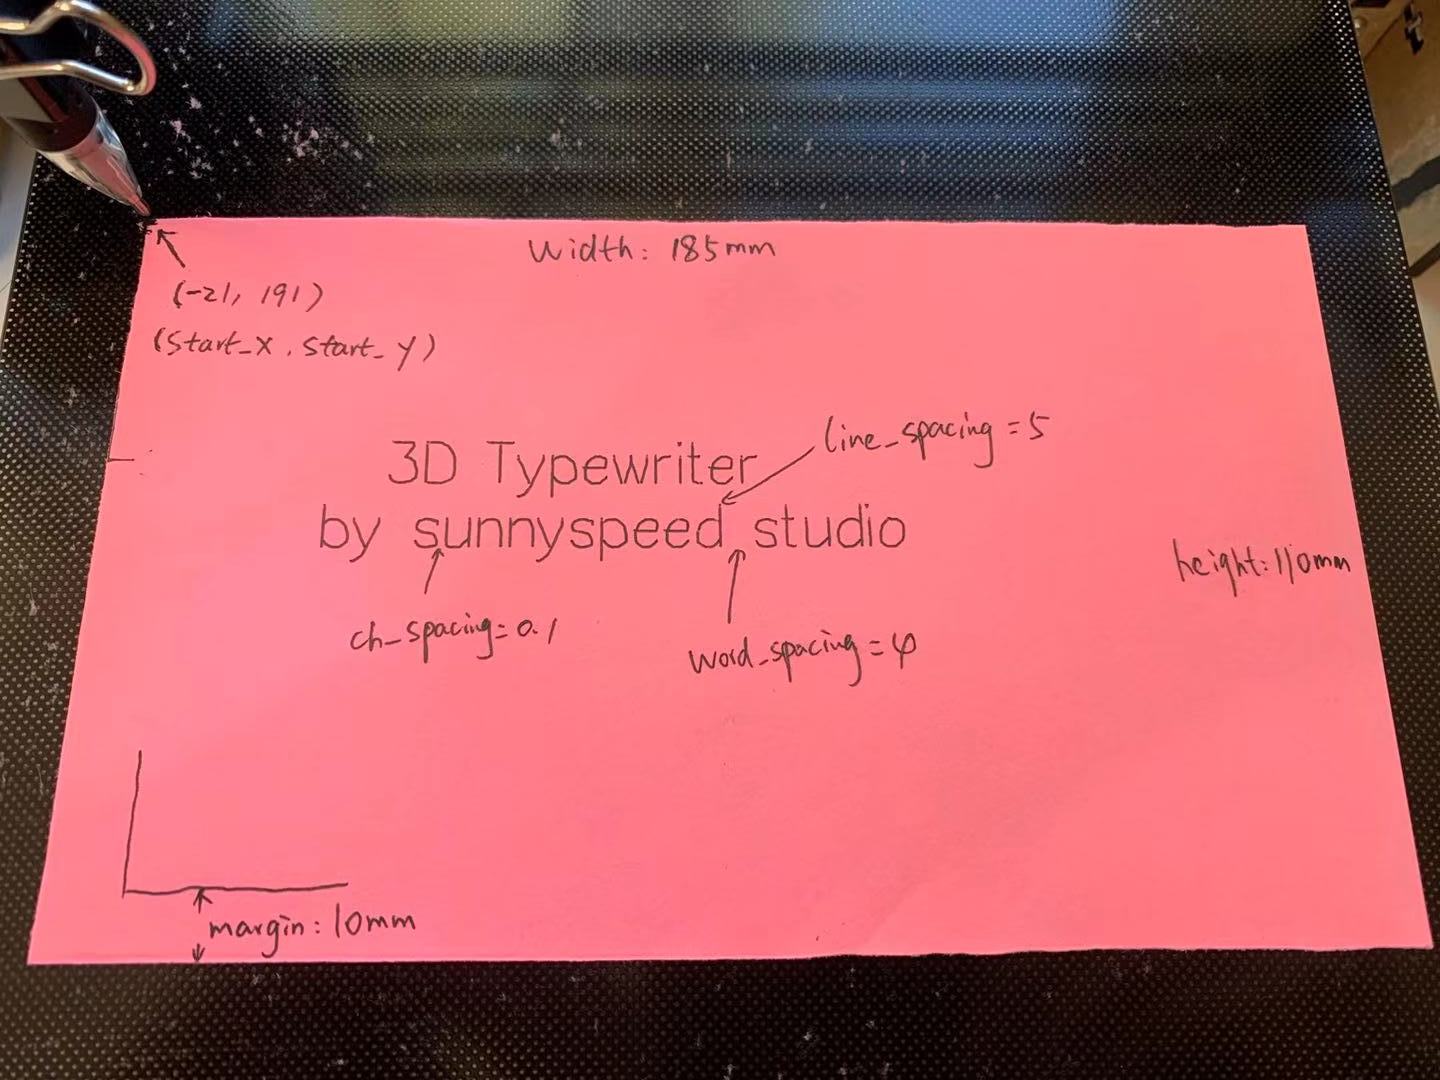 Width: 185mm
(-21, 191)
(Start_x, Start_y)
line_spacing = 5
3D Typewriter
by sunnyspeed studio
height: 110mm
ch_spacing = 0.1
word_spacing = 4
margin: 10mm